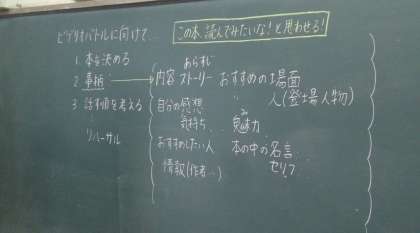 ビブリオバトルに向けて…
この本、読んでみたいな!と思わせる!
1 本を決める
2 準備
3 話す順を考える
リハーサル
あらすじ
内容 ストーリー おすすめの場面
〃 人(登場人物)
自分の感想
気持ち
み
魅力
おすすめしたい人 本の中の名言
セリフ
情報(作者…)